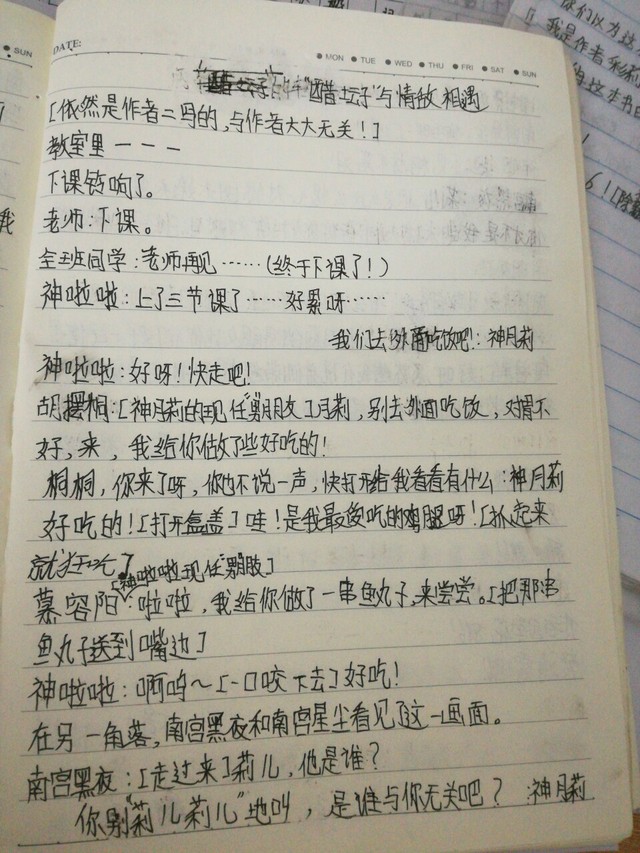 SUN
DATE:
MON TUE WED THU FRI SAT SUN
"醋坛子"与情敌相遇
[依然是作者二吗的,与作者大大无关!]
教室里一一一
下课铃响了。
老师:下课。
全班同学:老师再见……(终于下课了!)
神啦啦:上了三节课了……好累呀……
我们去外面吃饭吧!:神月莉
神啦啦:好呀!快走吧!
胡摆桐:[神月莉的现任"男朋友]月莉,别去外面吃饭,对胃不
好,来,我给你做了些好吃的!
桐桐,你来了呀,你也不说一声,快打开给我看看有什么:神月莉
好吃的![打开盒盖]哇!是我最爱吃的鸡腿呀![抓起来
就狂吃了
[神啦啦现任"男朋友]
慕容阳:啦啦,我给你做了一串鱼丸子,来尝尝。[把那串
鱼丸子送到嘴边]
神啦啦:啊呜~[一口咬下去]好吃!
在另一角落,南宫黑夜和南宫星尘看见了这一画面。
南宫黑夜:[走过来]莉儿,他是谁?
你别"莉儿莉儿"地叫,是谁与你无关吧?:神月莉
我
你们以为这
我是作者
的这本书